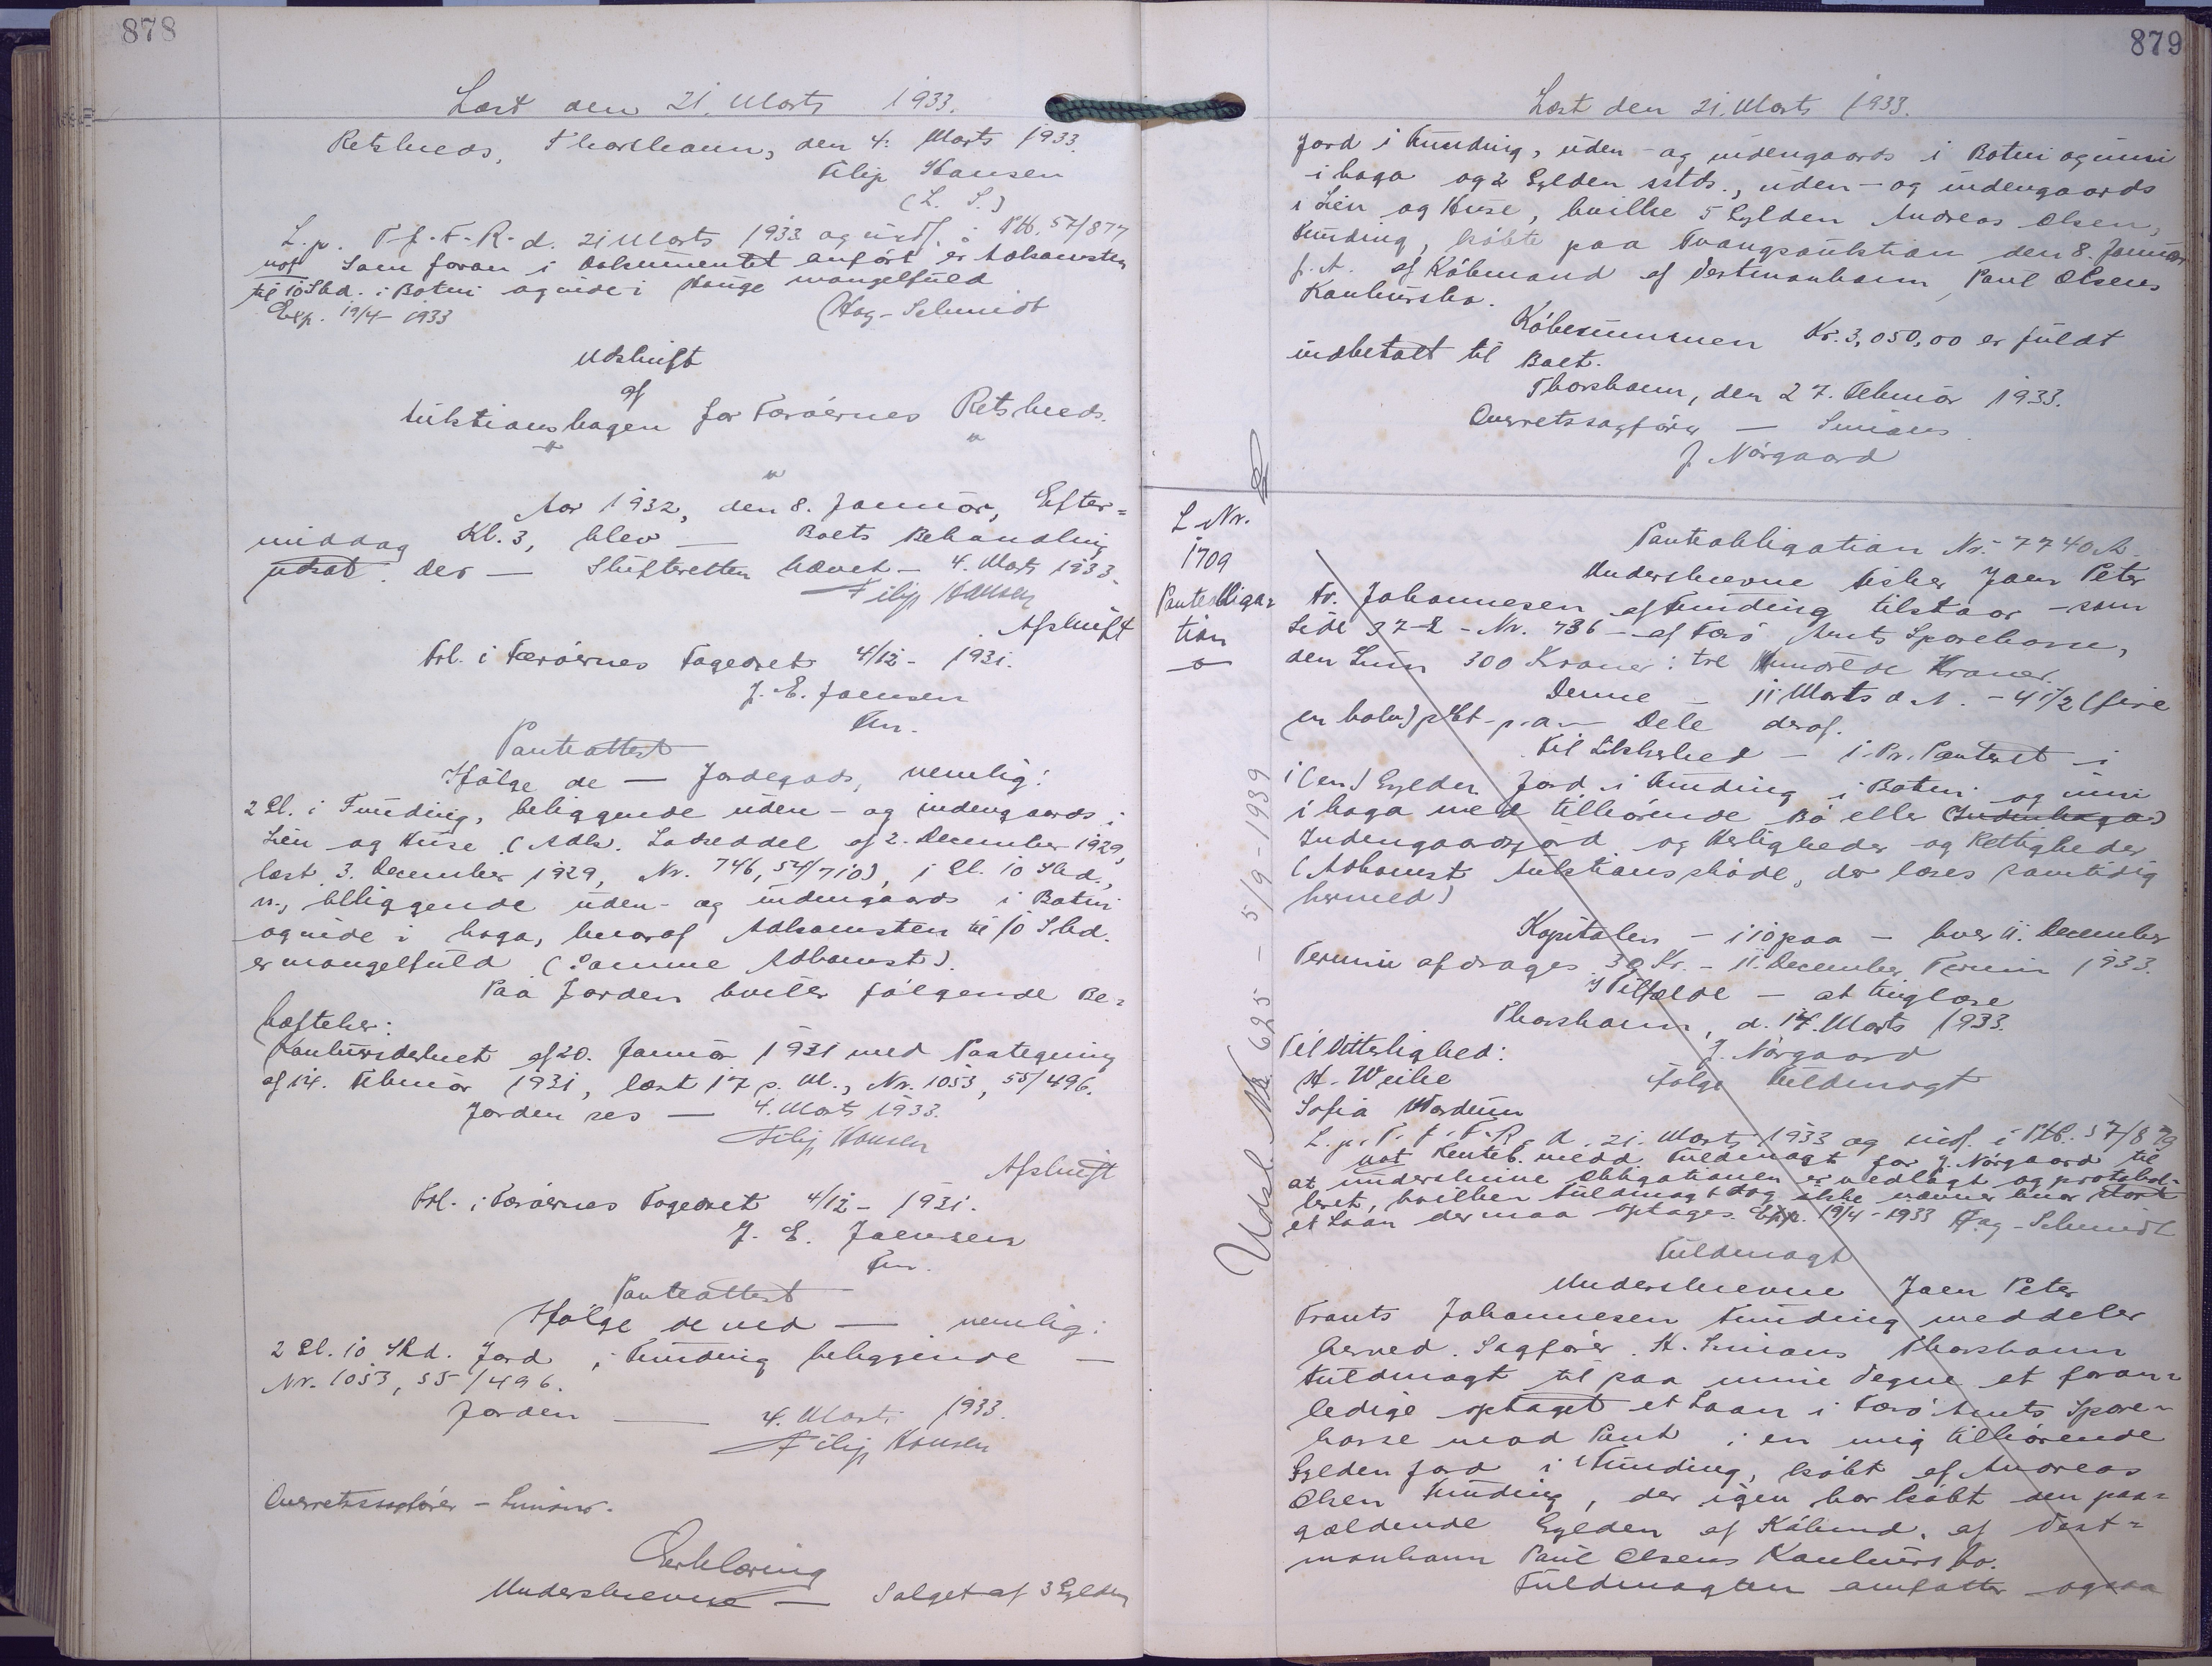 878
Læst den 21. Marts 1933.
Retskreds, Thorshavn, den 4. Marts 1933.
Filip Hansen
(L. S.)
L. p. T. f. F. R. d. 21 Marts 1933 og indf. i Ptb. 57/877
not Som foran i Dokumentet anført er Adkomsten
til 10 Skd. i Botni og nide i Hauge mangelfuld
Exp. 19/4 - 1933 Hag-Schmidt
Udskrift
af
Auktionsbogen for Færøernes Retskreds.
Aar 1932, den 8. Januar, Efter=
middag Kl. 3, blev — Boets Behandling
udsat. Der — Skifteretten hævet — 4. Marts 1933.
Filip Hansen
Afskrift
Frl. i Færøernes Fogedret 4/12 - 1931.
J. E. Joensen
Fm.
Panteattest
Ifølge de — Jordegods, nemlig:
2 Gl. i Funding, beliggende uden- og indengaards i
Lien og Huse (Adk. Lodseddel af 2. December 1929,
læst 3. December 1929, Nr. 746, 54/710), 1 Gl. 10 Skd.,
n., beliggende uden- og indengaards i Botni
og nide i haga, hvoraf Adkomsten til 10 Skd.
er mangelfuld (Samme Adkomst).
Paa Jorden hviler følgende Be=
hæftelser:
Konkursdekret af 20. Januar 1931 med Paategning
af 14. Februar 1931, læst 17 s. M., Nr. 1053, 55/496.
Jorden ses — 4. Marts 1933.
Filip Hansen
Afskrift
Frl. i Færøernes Fogedret 4/12 - 1931.
J. E. Joensen
Fm.
Panteattest
Ifølge de ved — nemlig:
2 Gl. 10 Skd. Jord i Funding beliggende —
Nr. 1053, 55/496.
Jorden — 4. Marts 1933.
Filip Hansen
Overretssagfører - Simons.
Erklæring
Underskrevne — Salget af 3 Gylden
879
Læst den 21. Marts 1933.
Jord i Funding, uden- og indengaards i Botni og unni
i haga og 2 Gylden sstds., uden- og indengaards
i Lien og Huse, hvilke 5 Gylden Andreas Olsen,
Funding, købte paa Tvangsauktion den 8. Januar
f. A. af Købmand af Vestmanhavn, Paul Olsens
Konkursbo.
Købesummen Kr. 3,050,00 er fuldt
indbetalt til Boet.
Thorshavn, den 27. Februar 1933.
Overretssagfører — Simons.
J. Nørgaard
L. Nr.
1709
Panteobliga=
tion
Panteobligation Nr. 7740 A.
Underskrevne Fisker Joen Peter
Fr. Johannesen af Funding tilstaar - som
Side 37-2 - Nr. 736 - af Færø Amts Sparekasse,
den Sum 300 Kroner: tre Hundrede Kroner.
Denne — 11 Marts d. A. - 4 1/2 (fire
en halv) pCt. p. a. — Dele deraf.
Til Sikkerhed — 1. Pr. Panteret i
1 (en) Gylden Jord i Funding i Botni og unni
i haga med tilhørende Bø eller (Indenhaga)
Indengaardsjord og Herligheder og Rettigheder
(Adkomst Auktionsskøde, der læses samtidig
hermed)
Kapitalen - 1/10 paa - hver 11. December
Termin afdrages 30 Kr. - 11. December Termin 1933.
I Tilfælde — at tinglæse
Thorshavn, d. 14. Marts 1933.
Til Vitterlighed: J. Nørgaard
H. Weihe ifølge Fuldmagt
Sofia Wardum
L. p. T. f. F. R. d. 21. Marts 1933 og indf. i Ptb. 57/879
not Renteb. medd. Fuldmagt for J. Nørgaard til
at underskrive Obligationen er vedlagt og protokol=
leret, hvilken Fuldmagt dog ikke nævner hvor stort
et Laan der maa optages. Exp. 19/4 - 1933 Hag-Schmidt
Udsl. Nr. 625 - 5/9 - 1939
Fuldmagt
Underskrevne Joen Peter
Frants Johannesen Funding meddeler
herved Sagfører H. Simons Thorshavn
Fuldmagt til paa mine Vegne at foran=
ledige optaget et Laan i Færø Amts Spare=
kasse mod Pant i en mig tilhørende
Gylden Jord i Funding, købt af Andreas
Olsen Funding, der igen har købt den paa=
gældende Gylden af Købmd. af Vest=
manhavn Paul Olsens Konkursbo.
Fuldmagten omfatter ogsaa